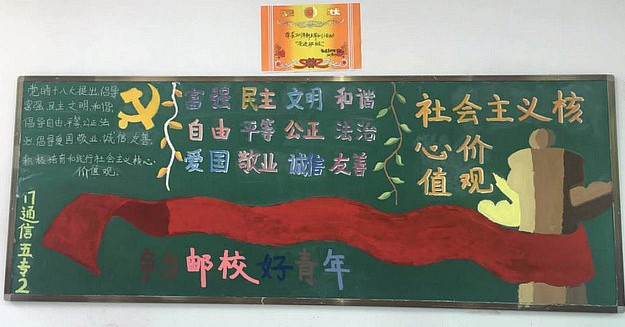 奖状
党的十八大提出,倡导
富强、民主、文明、和谐,
倡导自由、平等、公正、法
治,倡导爱国、敬业、诚信、友善,
积极培育和践行社会主义核心
价值观。
富强 民主 文明 和谐
自由 平等 公正 法治
爱国 敬业 诚信 友善
社会主义核
心价
值观
17通信五专2
争当邮校好青年